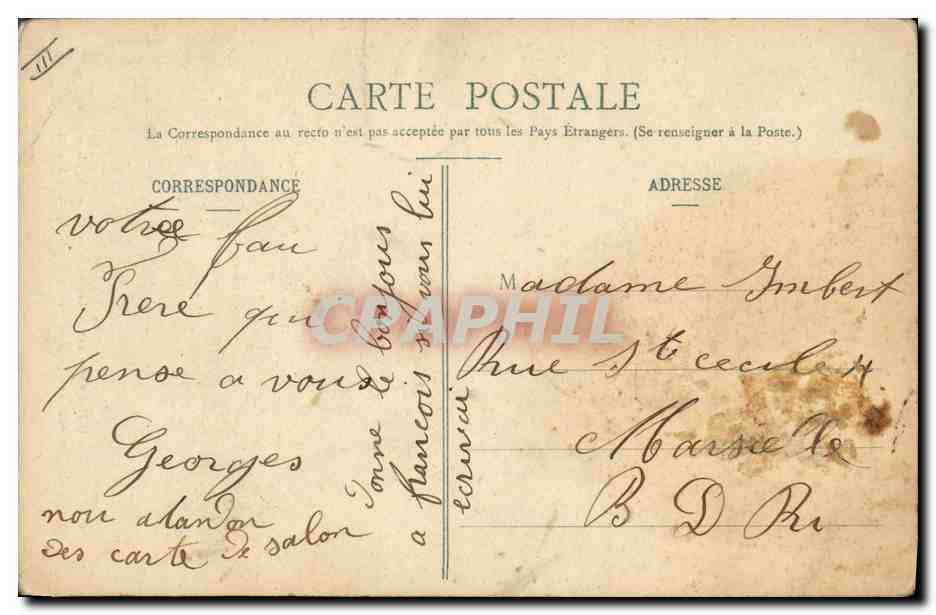 III
CARTE POSTALE
La Correspondance au recto n'est pas acceptée par tous les Pays Étrangers. (Se renseigner à la Poste.)
CORRESPONDANCE
votre bau
Frere qui
pense a vous
Georges
nou atandon
des carte de salon
Donne le bonjour
a francois s vous lui
ecrivai
ADRESSE
Madame Imbert
Rue Ste cecile 14
Marseille
B D R
CPAPHIL